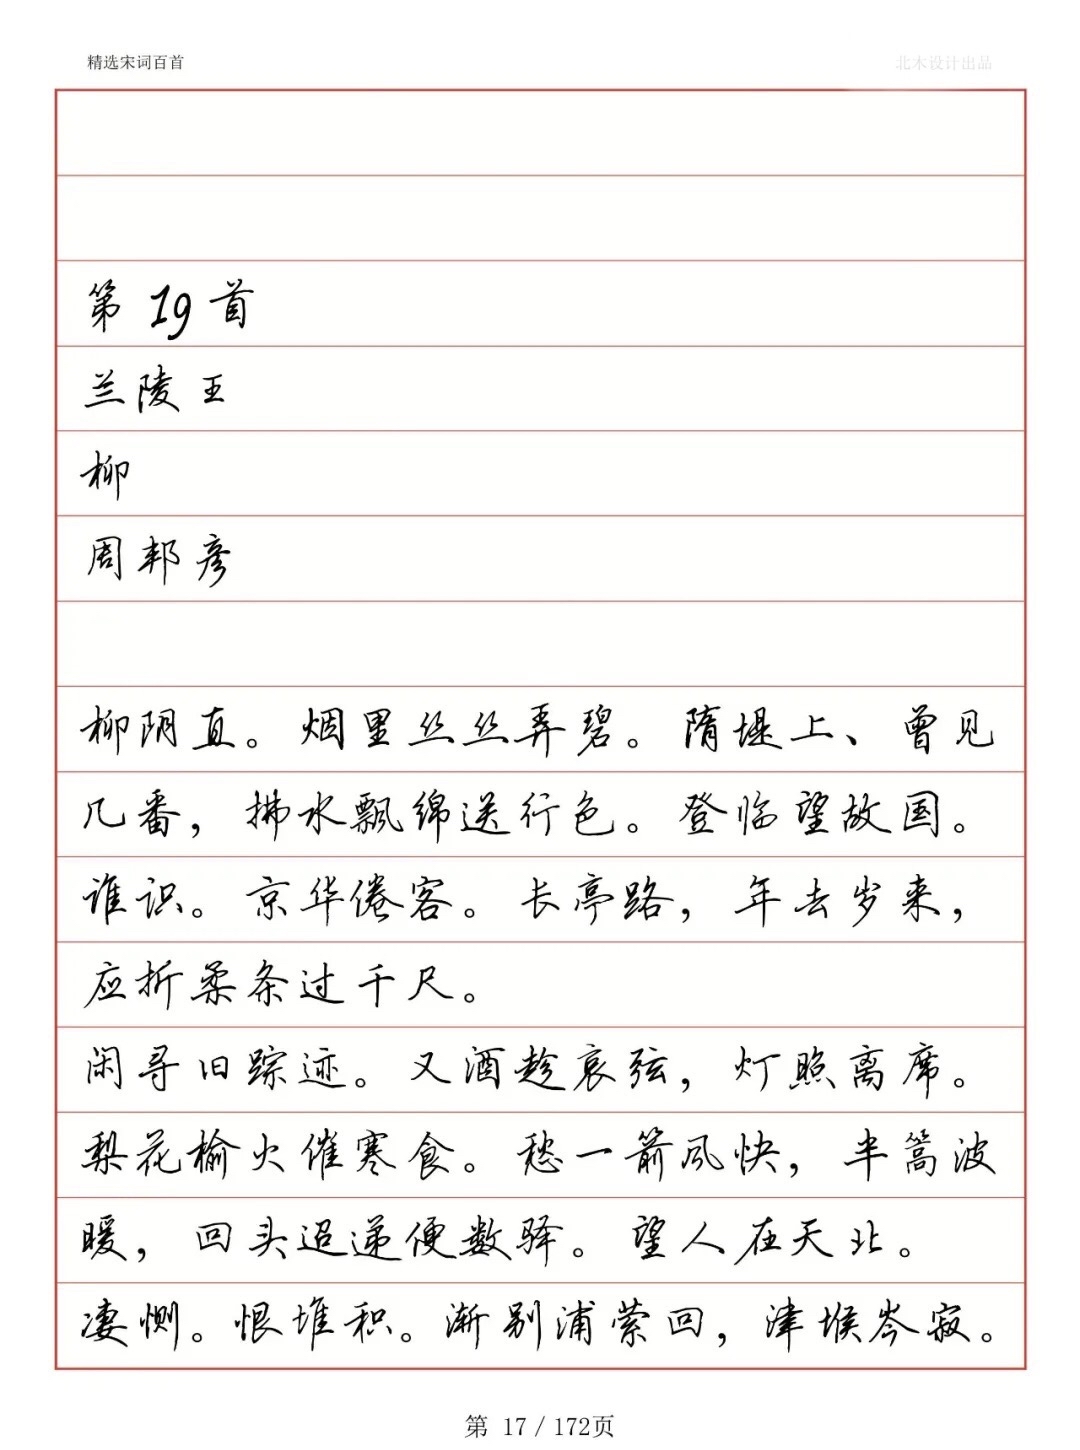 精选宋词百首
北木设计出品
第19首
兰陵王
柳
周邦彦
柳阴直。烟里丝丝弄碧。隋堤上、曾见
几番，拂水飘绵送行色。登临望故国。
谁识。京华倦客。长亭路，年去岁来，
应折柔条过千尺。
闲寻旧踪迹。又酒趁哀弦，灯照离席。
梨花榆火催寒食。愁一箭风快，半篙波
暖，回头迢递便数驿。望人在天北。
凄恻。恨堆积。渐别浦萦回，津堠岑寂。
第 17 / 172页